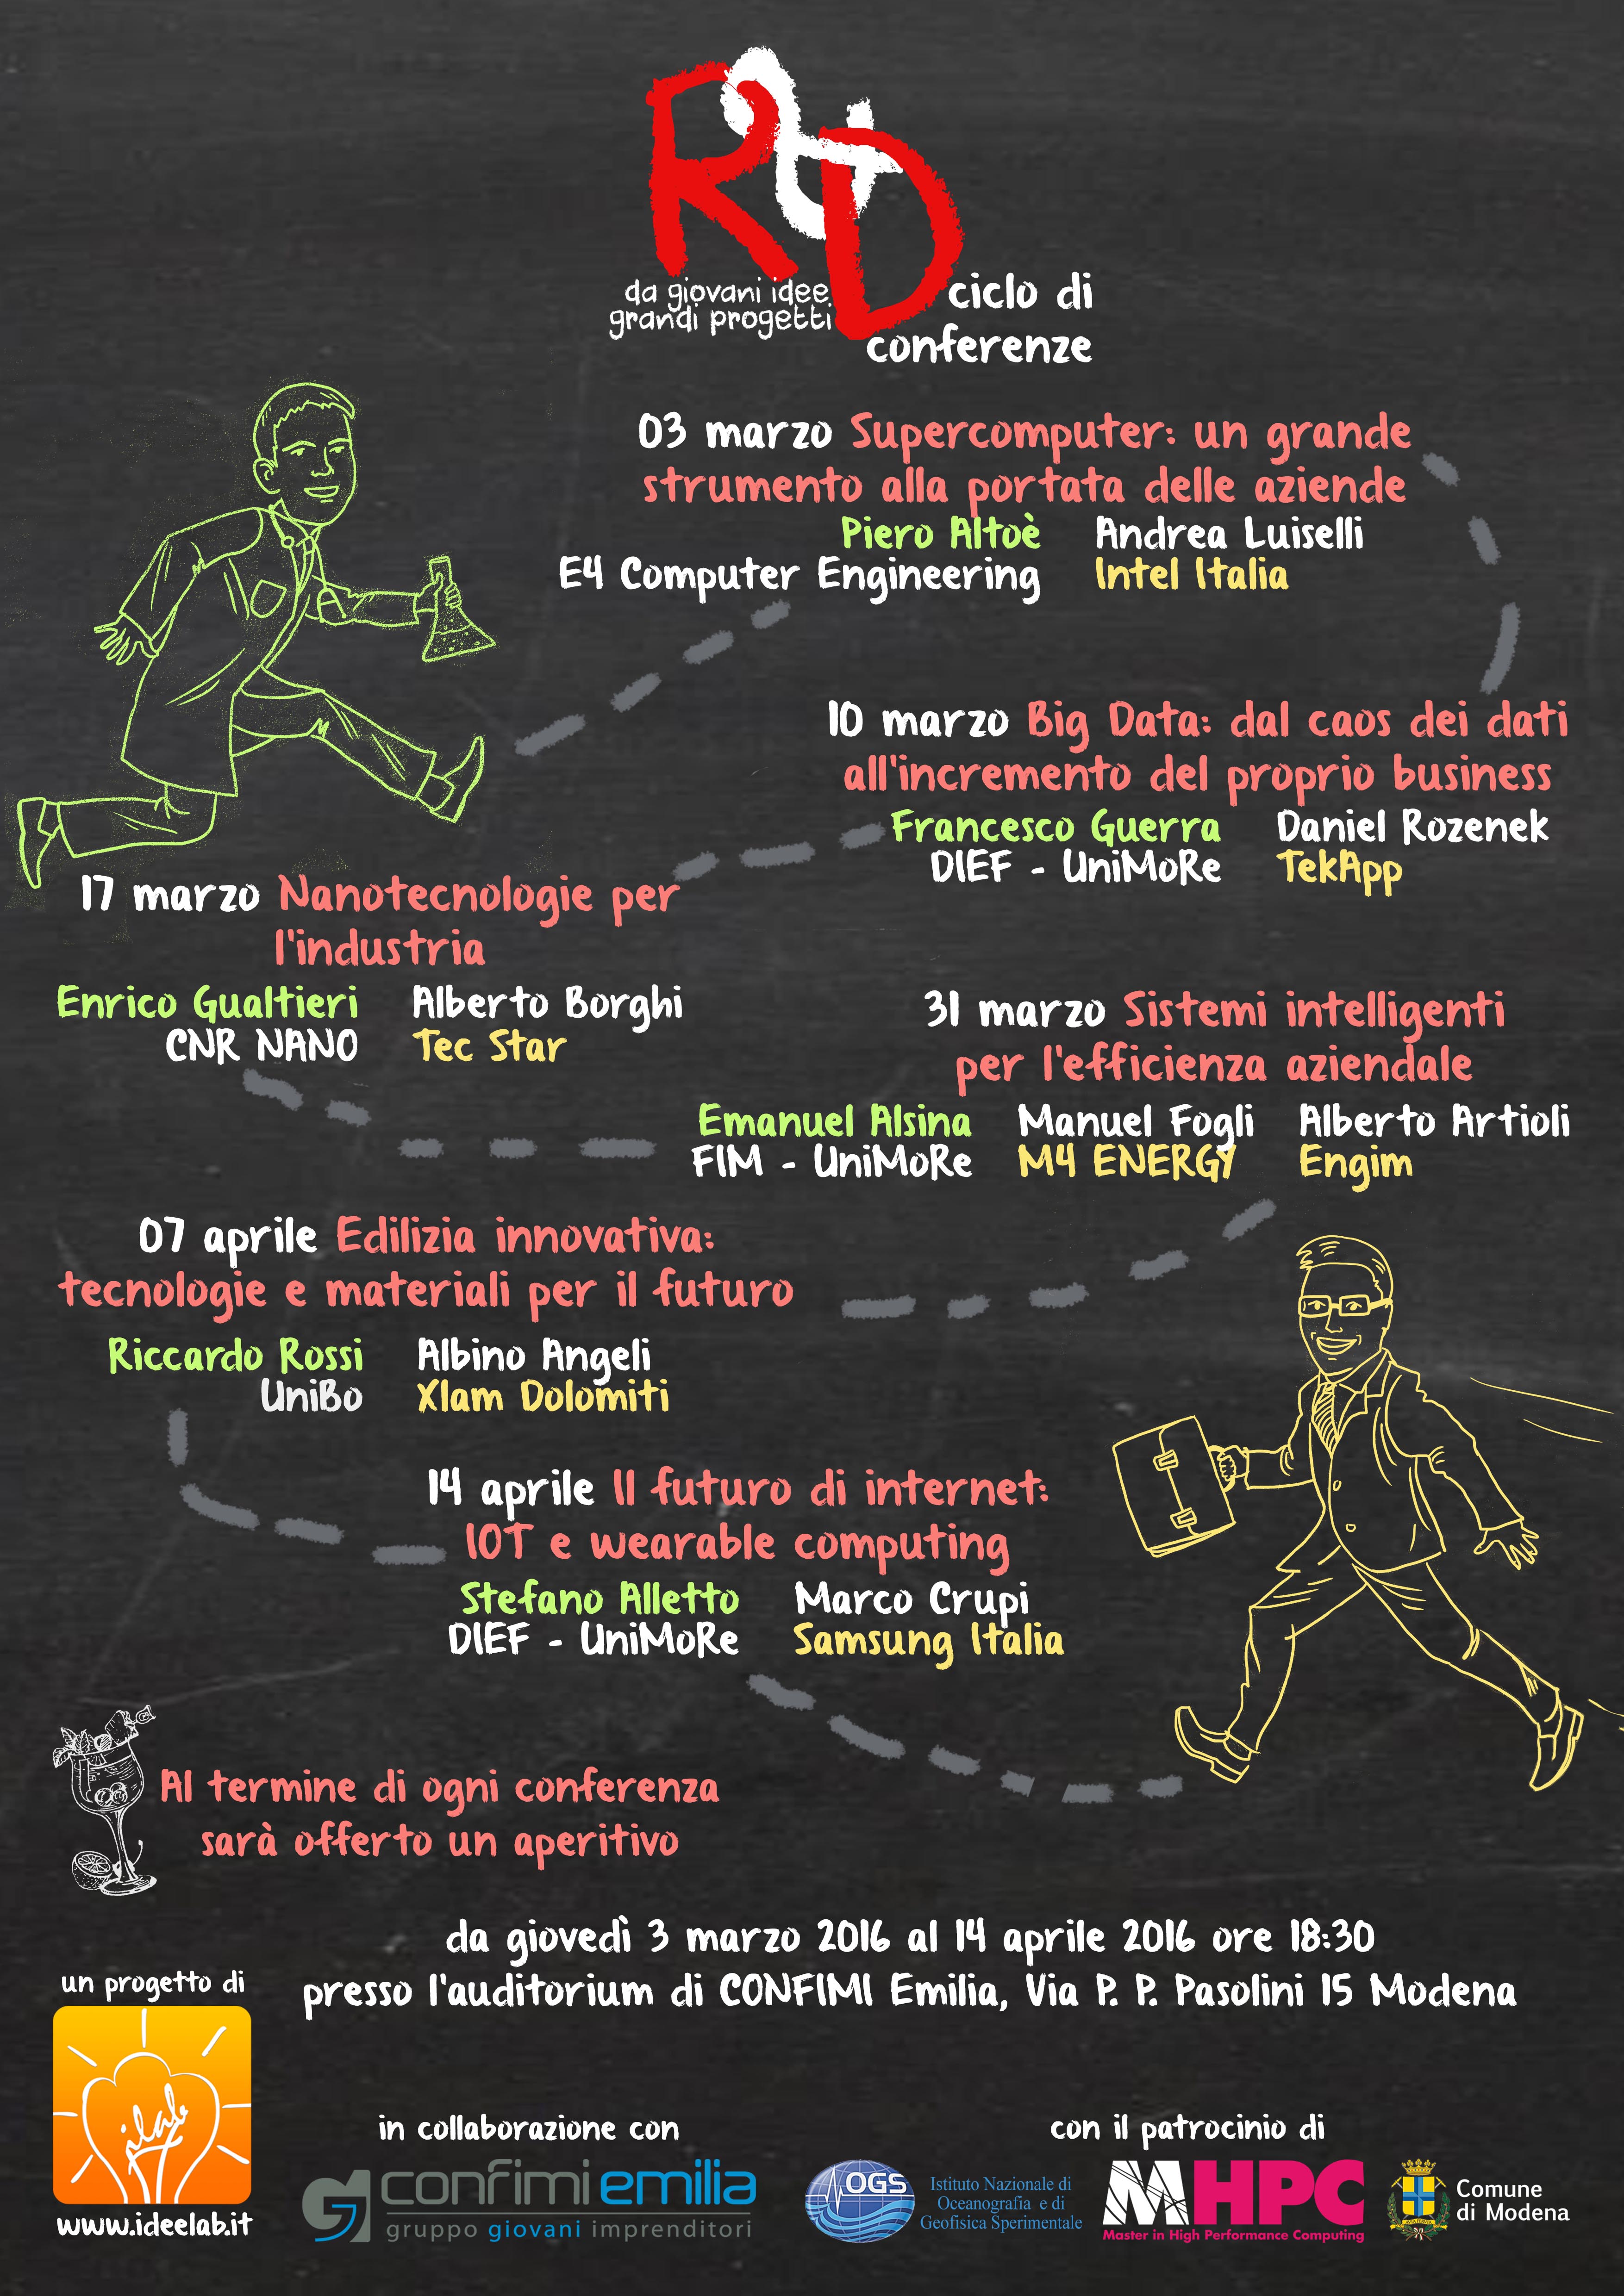 R&D
da giovani idee
grandi progetti
ciclo di
conferenze
03 marzo Supercomputer: un grande
strumento alla portata delle aziende
Piero Altoè Andrea Luiselli
E4 Computer Engineering Intel Italia
10 marzo Big Data: dal caos dei dati
all'incremento del proprio business
Francesco Guerra Daniel Rozenek
DIEF - UniMoRe TekApp
17 marzo Nanotecnologie per
l'industria
Enrico Gualtieri Alberto Borghi
CNR NANO Tec Star
31 marzo Sistemi intelligenti
per l'efficienza aziendale
Emanuel Alsina Manuel Fogli Alberto Artioli
FIM - UniMoRe M4 ENERGY Engim
07 aprile Edilizia innovativa:
tecnologie e materiali per il futuro
Riccardo Rossi Albino Angeli
UniBo Xlam Dolomiti
14 aprile Il futuro di internet:
IOT e wearable computing
Stefano Alletto Marco Crupi
DIEF - UniMoRe Samsung Italia
Al termine di ogni conferenza
sarà offerto un aperitivo
da giovedì 3 marzo 2016 al 14 aprile 2016 ore 18:30
presso l'auditorium di CONFIMI Emilia, Via P. P. Pasolini 15 Modena
un progetto di
ilab
www.ideelab.it
in collaborazione con
confimi emilia
gruppo giovani imprenditori
con il patrocinio di
OGS
Istituto Nazionale di
Oceanografia e di
Geofisica Sperimentale
MHPC
Master in High Performance Computing
Comune
di Modena